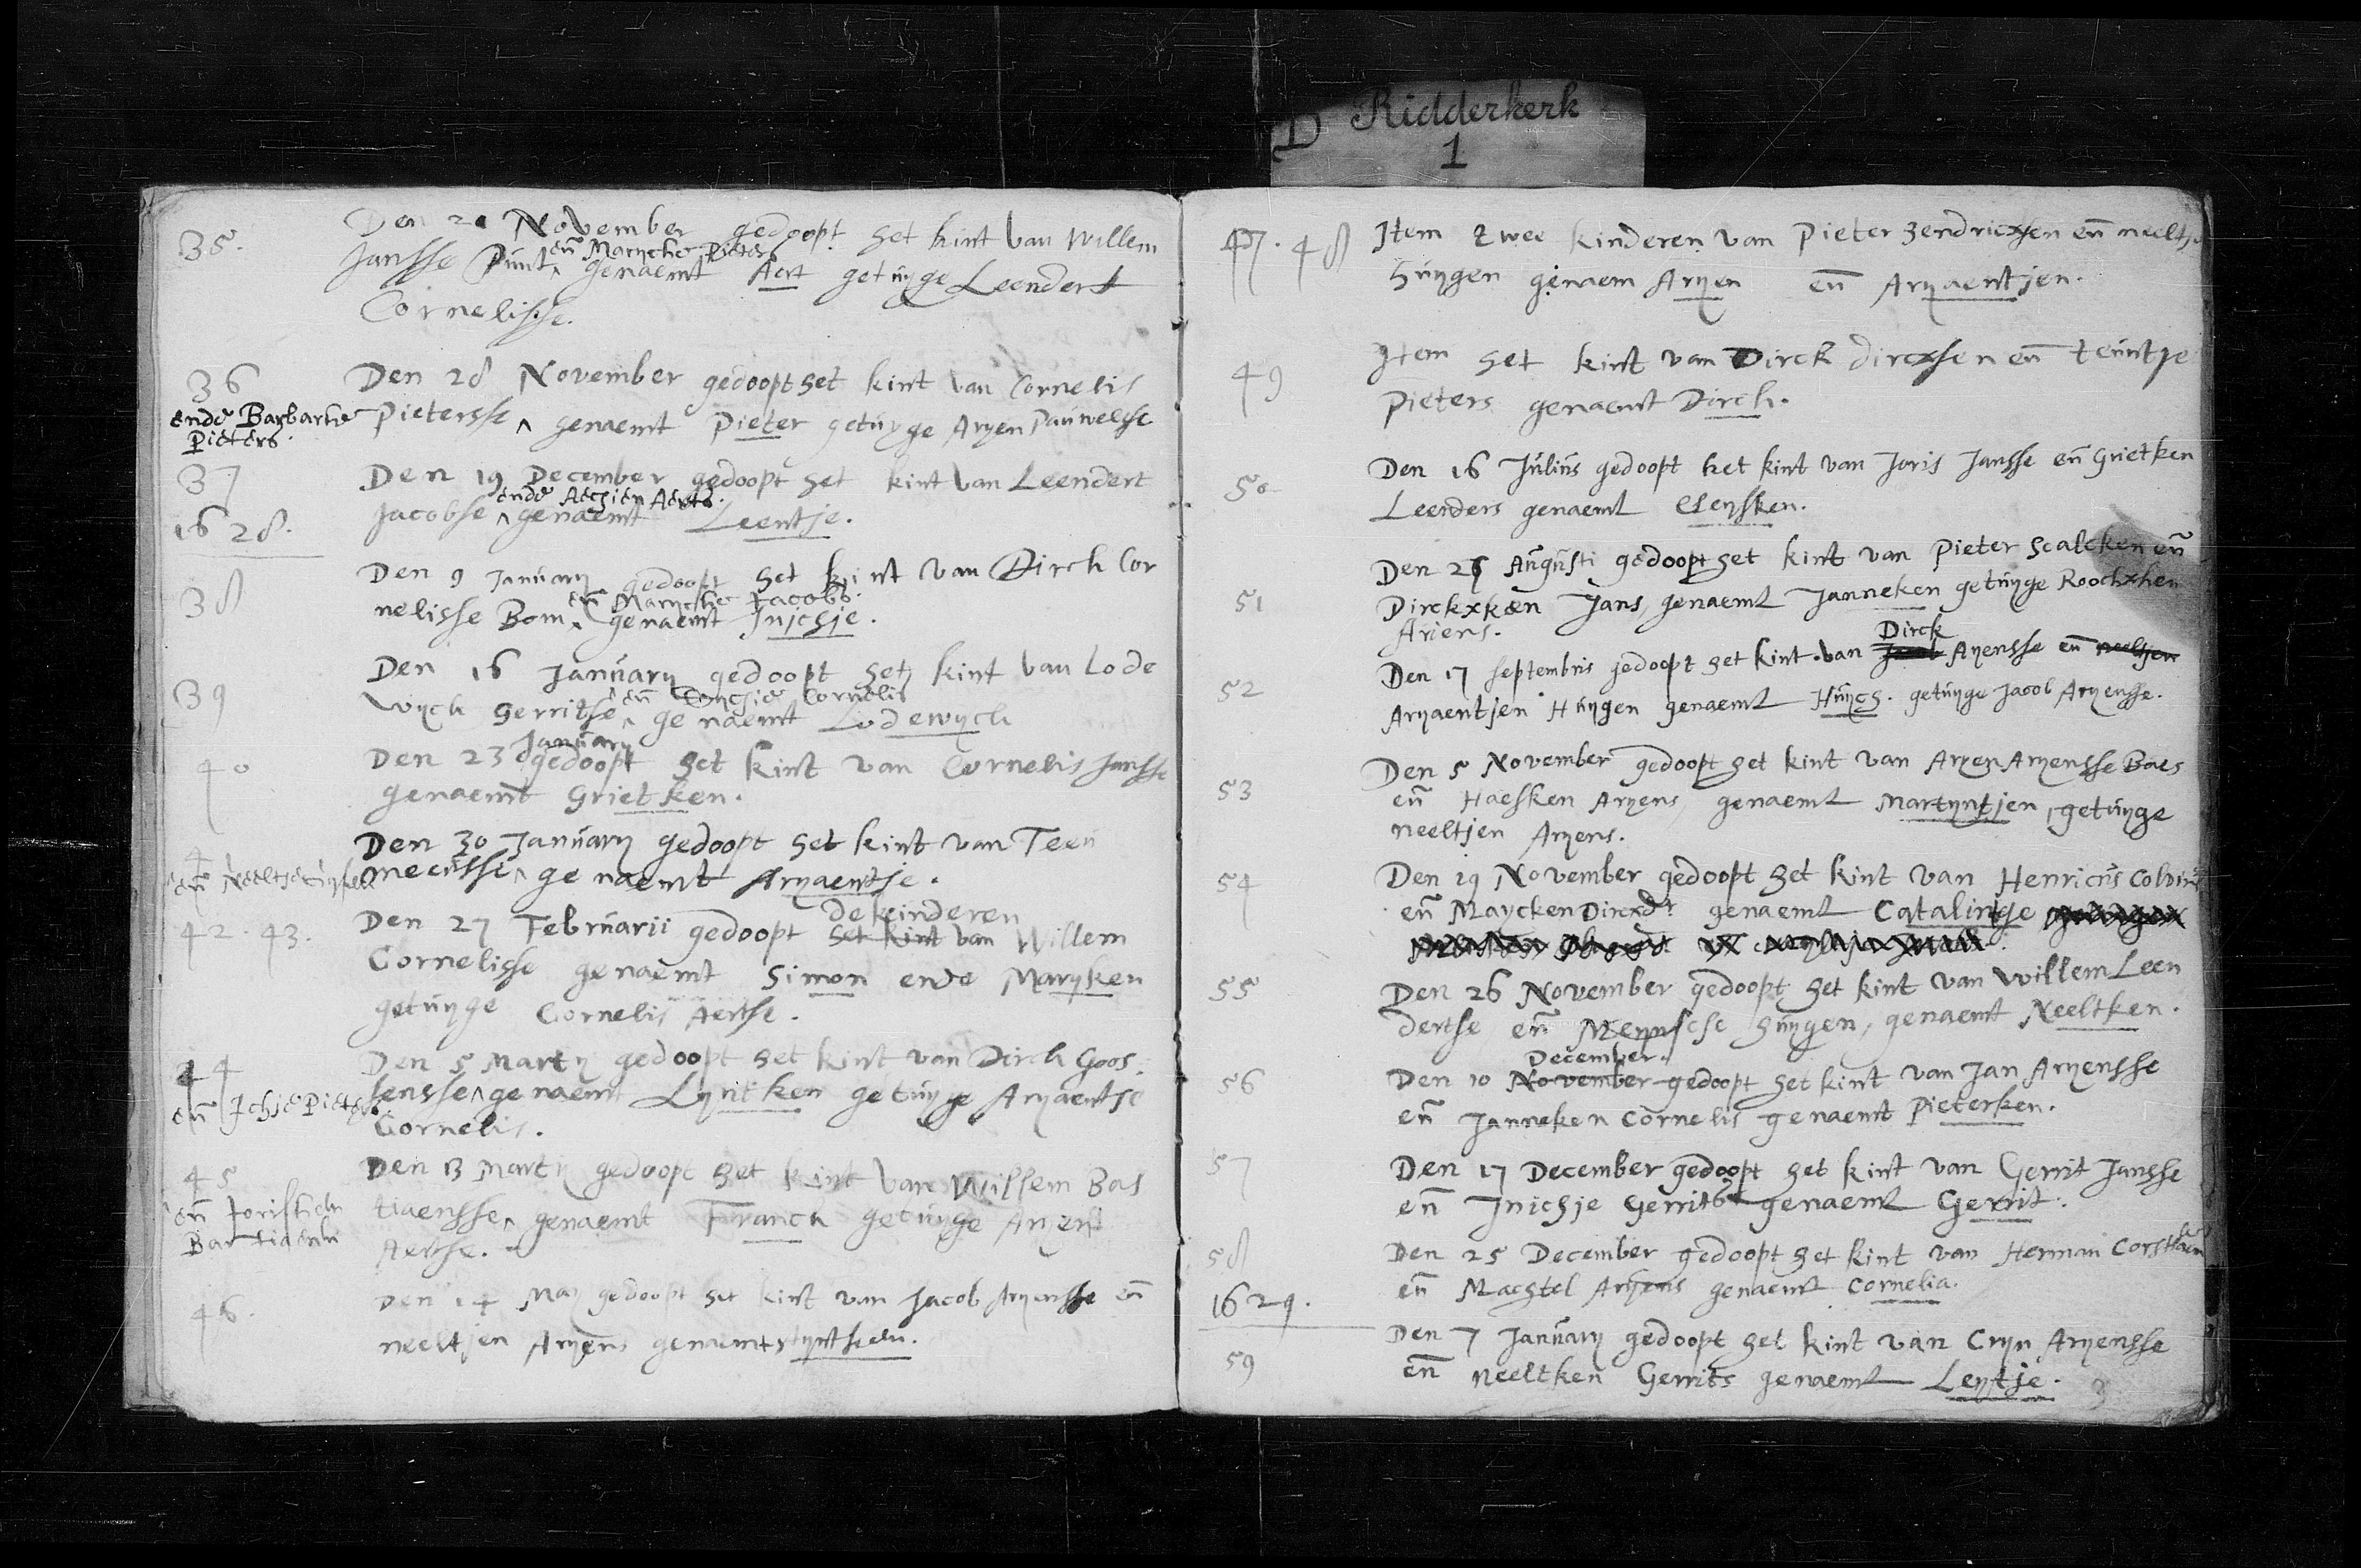 D Ridderkerk
1
35. Den 21 November gedoopt het kint van Willem
Jansse Punt ^ eñ Maryche Pieters genaemt Aert getuyge Leendert
Cornelisse.
36 Den 28 November gedoopt het kint van Cornelis
ende Barbartie Pieters. Pietersse ^ genaemt Pieter getuyge Aryen Pauwelsse
37 Den 19 December gedoopt het kint van Leendert
Jacobse ^ ende Aechjen Aerts. genaemt Leentje.
1628.
38 Den 9 January gedoopt het kint van Dirch Cor
nelisse Bom ^ eñ Maryche Jacobs. genaemt Inichje.
39 Den 16 January gedoopt het kint van Lode
wych Gerritse ^ eñ Cornelis genaemt Lodewych
40 Den 23 January gedoopt het kint van Cornelis Jansse
genaemt Grietken.
Den 30 January gedoopt het kint van Teeu
eñ Neeltje meeusse ^ genaemt Aryaentje.
42. 43. Den 27 Februarii gedoopt de kinderen het kint van Willem
Cornelisse genaemt Simon ende Maryken
getuyge Cornelis Aertse.
44 Den 5 Marty gedoopt het kint van Dirch Goos.
eñ Ichje Pieters sensse ^ genaemt Lyntken getuyge Aryaentje
Cornelis.
45 Den 13 Marty gedoopt het kint van Willem Bas
eñ Jorisken Bastiaens tiaensse ^ genaemt Franck getuyge Aryen
Aertse.
46. Den 14 May gedoopt het kint van Jacob Aryensse eñ
neeltjen Aryens genaemt styntken.
47. 48 Item twee kinderen van Pieter Hendricxsen eñ neeltje
Huygen genaem Aryen eñ Aryaentjen.
49 Item het kint van Dirck dircxsen eñ teuntje
Pieters genaemt Dirch.
50 Den 16 Julius gedoopt het kint van Joris Jansse eñ Grietken
Leenders genaemt Eleysken.
51 Den 26 Augusti gedoopt het kint van Pieter Scalcken eñ
Dirckxken Jans, genaemt Janneken getuyge Roockxhen
Ariens.
52 Den 17 septembris gedoopt het kint van Dirck Jacob Ayensse eñ neeltjen
Aryaentjen Huygen genaemt Huych. getuyge Jacob Aryensse.
53 Den 5 November gedoopt het kint van Aryen Aryensse Baes
eñ Haesken Aryens, genaemt Martyntjen, getuyge
neeltjen Aryens.
54 Den 19 November gedoopt het kint van Henricus Colvius
eñ Maycken Dircxdr genaemt Catalintje
55 Den 26 November gedoopt het kint van Willem Leen
dertse eñ Meynsche Huygen, genaemt Neeltken.
56 Den 10 December. November gedoopt het kint van Jan Aryensse
eñ Janneken Cornelis genaemt Pieterken.
57 Den 17 December gedoopt het kint van Gerrit Jansse
eñ Inichje Gerrits genaemt Gerrit.
58 Den 25 December gedoopt het kint van Herman Corstiaen
eñ Machtel Aryens genaemt Cornelia.
1629.
59 Den 7 January gedoopt het kint van Cryn Aryensse
eñ Neeltken Gerrits genaemt Leytje.
3